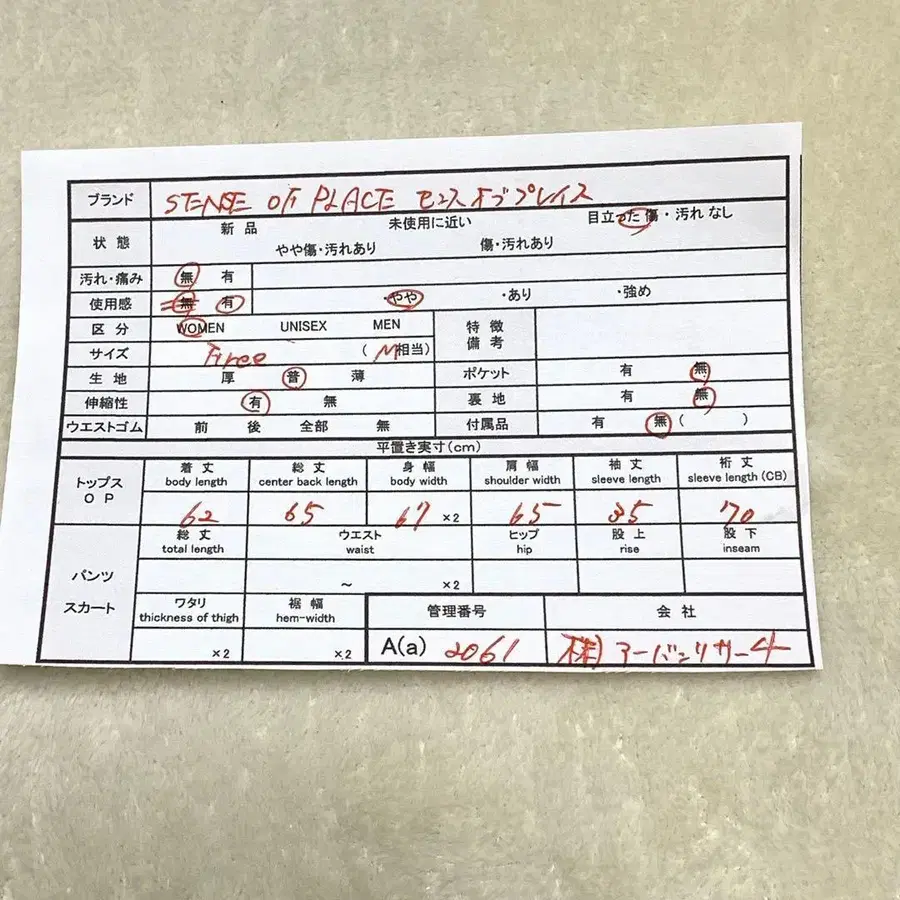 ブランド STENSE OF PLACE センスオブプレイス
状態 新品 未使用に近い 目立った傷・汚れなし
やや傷・汚れあり 傷・汚れあり
汚れ・痛み 無 有
使用感 無 有 ・やや ・あり ・強め
区分 WOMEN UNISEX MEN 特徴備考
サイズ Free (M相当)
生地 厚 普 薄 ポケット 有 無
伸縮性 有 無 裏地 有 無
ウエストゴム 前 後 全部 無 付属品 有 無( )
平置き実寸(cm)
トップス OP 着丈 総丈 身幅 肩幅 袖丈 裄丈
body length center back length body width shoulder width sleeve length sleeve length (CB)
62 65 67 ×2 65 35 70
パンツ スカート 総丈 ウエスト ヒップ 股上 股下
total length waist hip rise inseam
~ ×2
ワタリ 裾幅 管理番号 会社
thickness of thigh hem-width
×2 ×2 A(a) 2061 (株)アーバンリサーチ